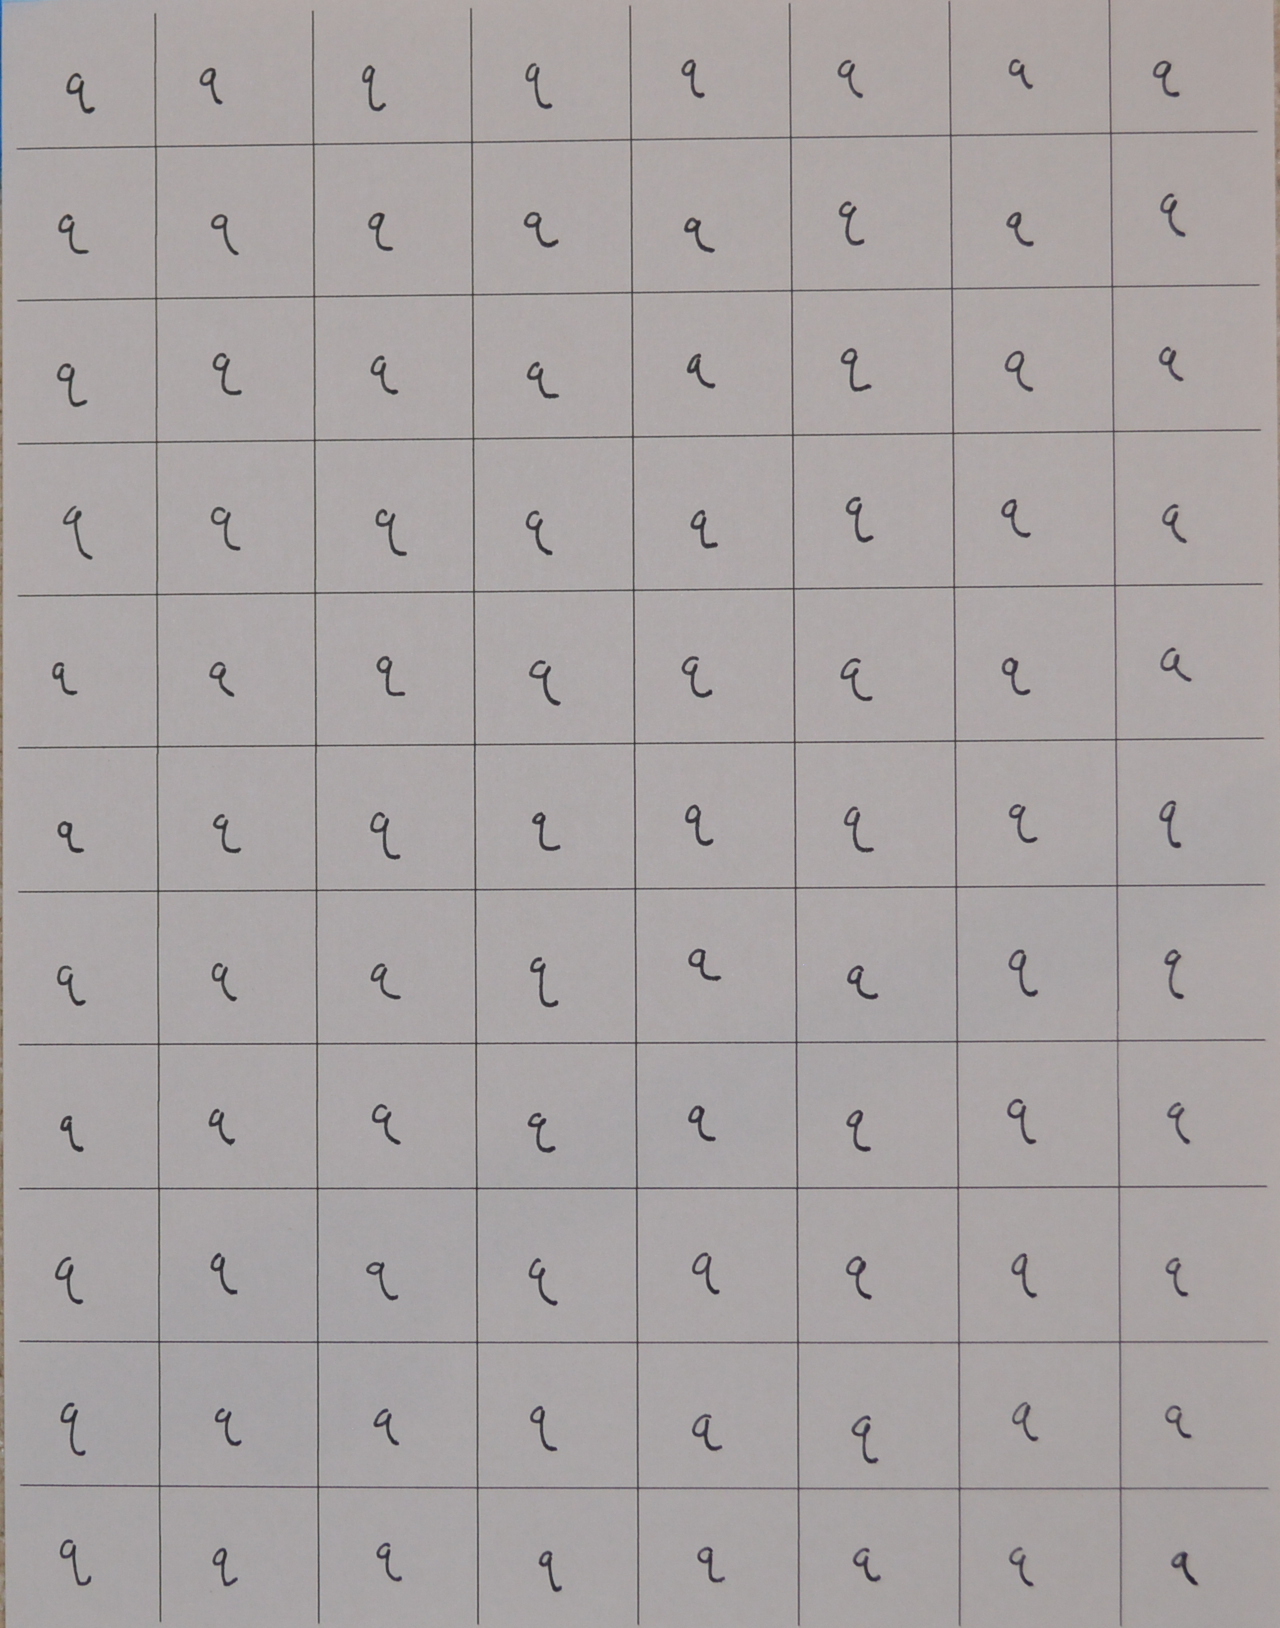 q q q q q q q q
q q q q q q q q
q q q q q q q q
q q q q q q q q
q q q q q q q q
q q q q q q q q
q q q q q q q q
q q q q q q q q
q q q q q q q q
q q q q q q q q
q q q q q q q q